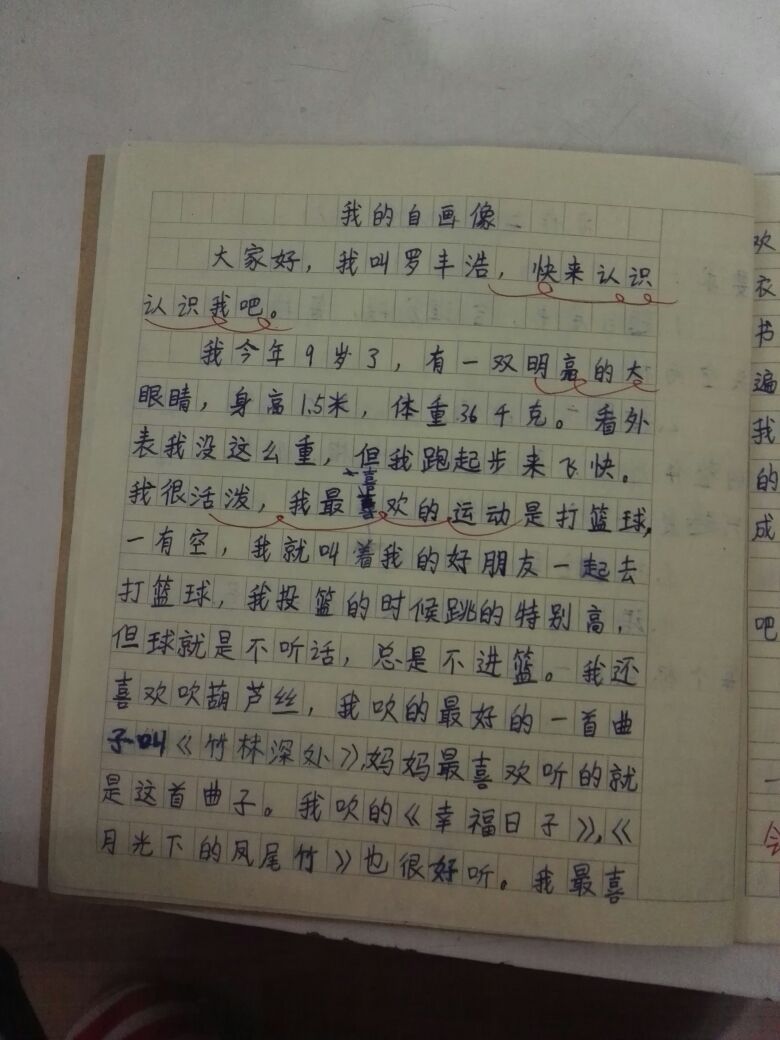 我的自画像
大家好，我叫罗丰浩，快来认识
认识我吧。
我今年9岁了，有一双明亮的大
眼睛，身高1.5米，体重36千克。看外
表我没这么重，但我跑起步来飞快。
我很活泼，我最喜欢的运动是打篮球，
一有空，我就叫着我的好朋友一起去
打篮球，我投篮的时候跳的特别高，
但球就是不听话，总是不进篮。我还
喜欢吹葫芦丝，我吹的最好的一首曲
子叫《竹林深处》，妈妈最喜欢听的就
是这首曲子。我吹的《幸福日子》，《
月光下的凤尾竹》也很好听。我最喜
欢
衣
书
遍
我
的
成
吧
一